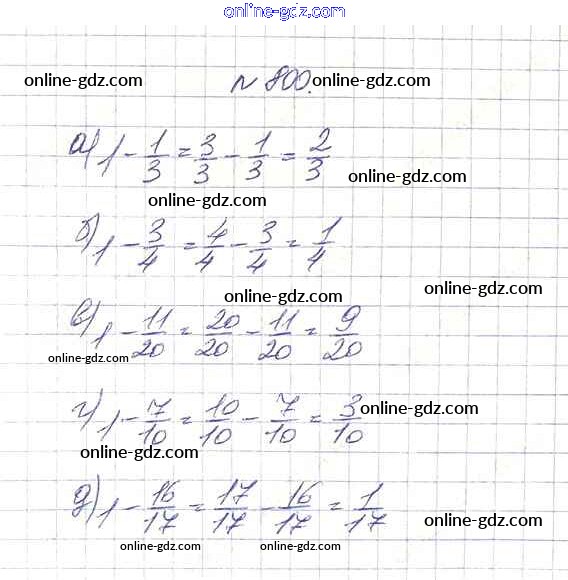 online-gdz.com
online-gdz.com № 800. online-gdz.com
а) 1 - 1/3 = 3/3 - 1/3 = 2/3
online-gdz.com
online-gdz.com
б) 1 - 3/4 = 4/4 - 3/4 = 1/4
online-gdz.com
online-gdz.com
в) 1 - 11/20 = 20/20 - 11/20 = 9/20
online-gdz.com
г) 1 - 7/10 = 10/10 - 7/10 = 3/10
online-gdz.com
online-gdz.com
д) 1 - 16/17 = 17/17 - 16/17 = 1/17
online-gdz.com
online-gdz.com online-gdz.com